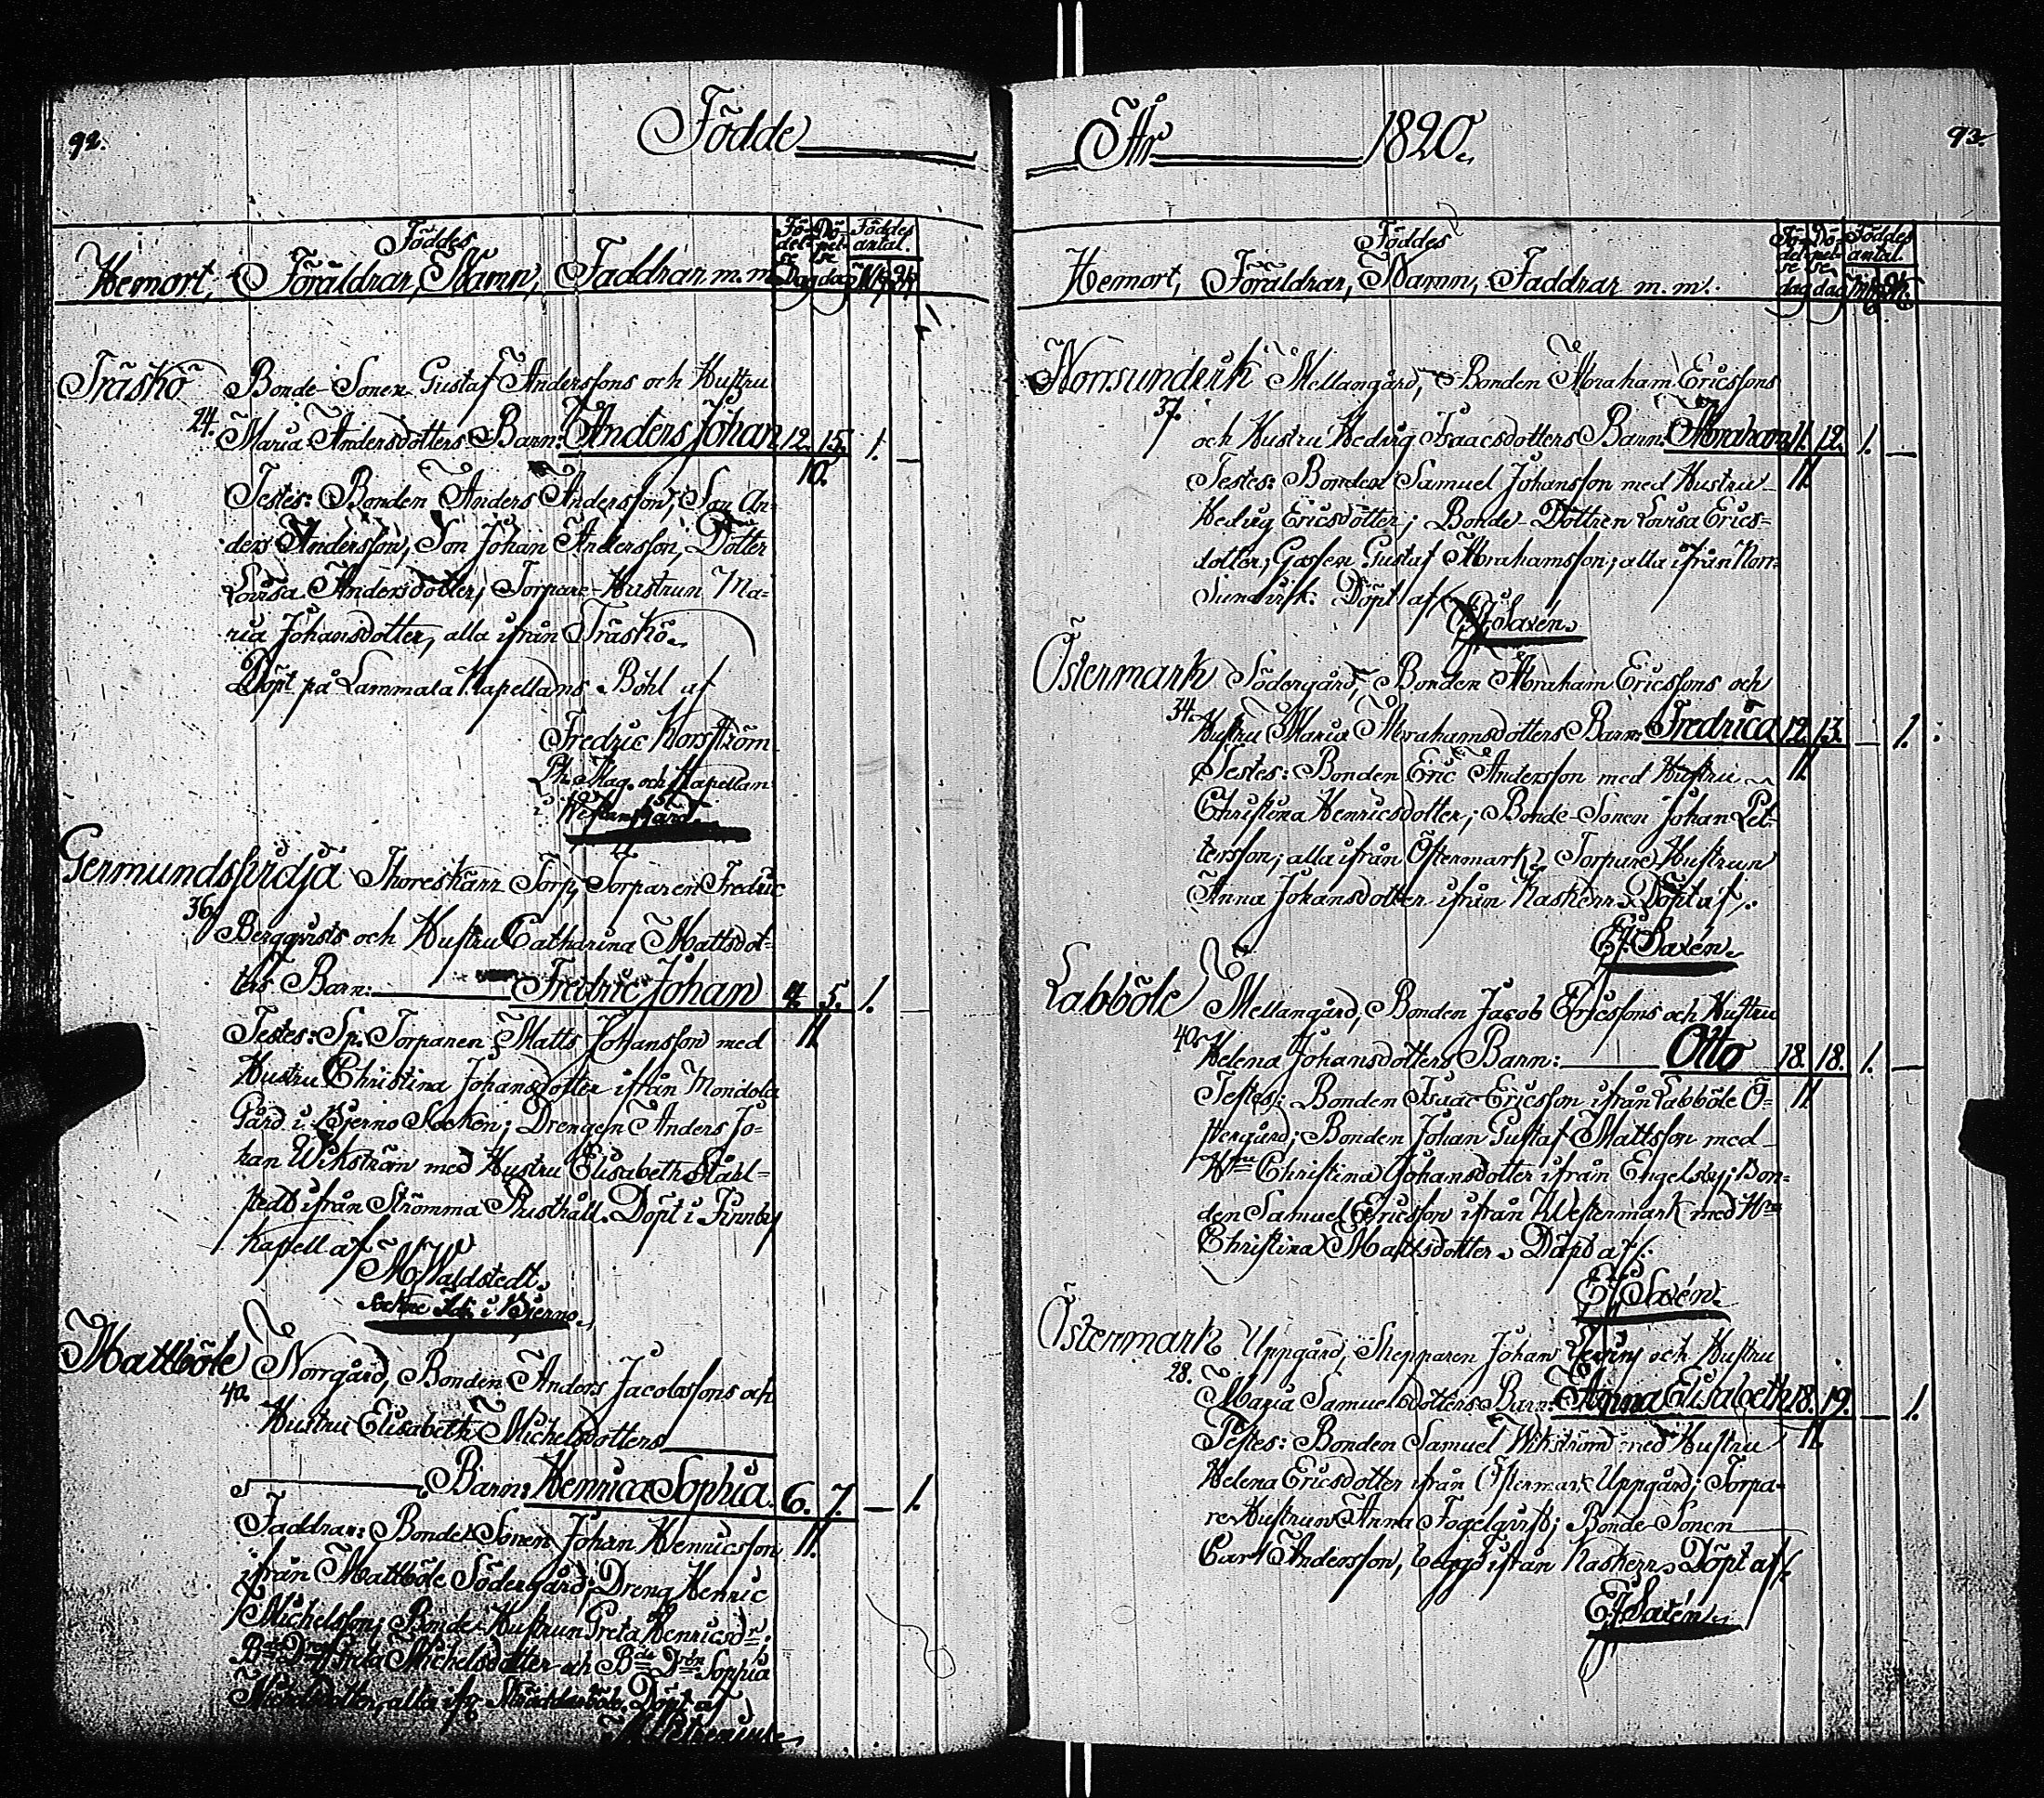 92.
Födde
Föddes
Hemort, Föräldrar, Namn, Faddrar m. m.
Fö- Dö- Föddes
del- pel- antal.
se se
Dag dag Mk Qk
Träskö Bonde-Sonen Gustaf Anderssons och Hustru
24. Maria Andersdotters Barn: Anders Johan 12. 15. 1. —
10.
Testes: Bonden Anders Andersson, Son An-
ders Andersson, Son Johan Andersson, Dotter
Lovisa Andersdotter, Torpare-Hustrun Ma-
ria Johansdotter, alla ifrån Träskö.
Döpt på Lammala Kapellans Bohl af
Fredric Korsström
Ph. Mag. och Kapellan
i Westanfjärd.
Germundsvidja Thoreskärr Torp, Torparen Fredric
36. Bergqvists och Hustru Catharina Mattsdot-
ters Barn: Fredric Johan 4. 5. 1. —
Testes: Sp. Torparen Matts Johansson med 11.
Hustru Christina Johansdotter ifrån Mondola
Gård i Bjerno Socken; Drengen Anders Jo-
han Wikström med Hustru Elisabeth Stahl-
stedt ifrån Strömma Risthåll. Döpt i Finnby
Kapell af
M. Waldstedt.
i Bjerno.
Mattböle Norrgård, Bonden Anders Jacobssons och
40. Hustru Elisabeth Michelsdotters
Barn: Henrica Sophia. 6. 7. — 1.
Faddrar: Bonde-Sonen Johan Henricsson 11.
ifrån Mattböle Södergård; Dreng Henric
Michelsson; Bonde-Hustrun Greta Henricsdr.;
Michelsdotter och Bde Dren Sophia
Michelsdotter, alla Döpt af
93.
År 1820.
Föddes
Hemort, Föräldrar, Namn, Faddrar m. m.
Fö- Dö- Föddes
del- pel- antal.
se se
dag dag Mk Qk.
Norrsundvik Mellangård, Bonden Abraham Ericssons
37. och Hustru Hedvig Isaacsdotters Barn: Abraham 11. 12. 1. —
Testes: Bonden Samuel Johansson med Hustru 11.
Hedvig Ericsdotter; Bonde-Dottren Lovisa Erics-
dotter, Gossen Gustaf Abrahamsson; alla ifrån Norr-
sundvik. Döpt af
Ef. Saxén.
Östermark Södergård, Bonden Abraham Ericssons och
34. Hustru Maria Abrahamsdotters Barn: Fredrica 12. 13. — 1.
Testes: Bonden Eric Andersson med Hustru 11.
Christina Henricsdotter; Bonde-Sonen Johan Pet-
tersson; alla ifrån Östermark, Torpare Hustrun
Anna Johansdotter ifrån Naskerr. Döpt af
Ef. Saxén.
Labböle Mellangård, Bonden Jacob Ericssons och Hustru
40. Helena Johansdotters Barn: Otto 18. 18. 1. —
Testes: Bonden Isaac Ericsson ifrån Labböle Ö- 11.
stergård; Bonden Johan Gustaf Mattsson med
Hru Christina Johansdotter ifrån Engelsby; Bon-
den Samuel Ericsson ifrån Westermark med Hru
Christina Mattsdotter. Döpt af
Ef. Saxén.
Östermark Uppgård, Skepparen Johan och Hustru
28. Maria Samuelsdotters Barn: Anna Elisabeth 18. 19. — 1.
Testes: Bonden Samuel Wikström med Hustru 11.
Helena Ericsdotter ifrån Östermark Uppgård; Torpa-
re-Hustrun Anna Fogelqvist; Bonde-Sonen
Carl Andersson, begge ifrån Naskerr. Döpt af
Ef. Saxén.